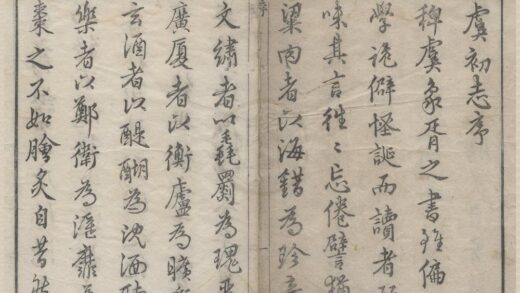 虞初志序
稗虞象胥之書雖偏
學詭僻怪誕而讀者
味其言往〻忘倦譬猶
粱肉者以海錯為珍
文繡者以毳罽為瑰
廣厦者以衡廬為曠
玄酒者以醍醐為沈酒
樂者以鄭衛為淫靡
棗之不如膾炙自昔